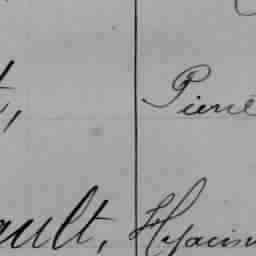 t, Pierre
ault, Hyacin